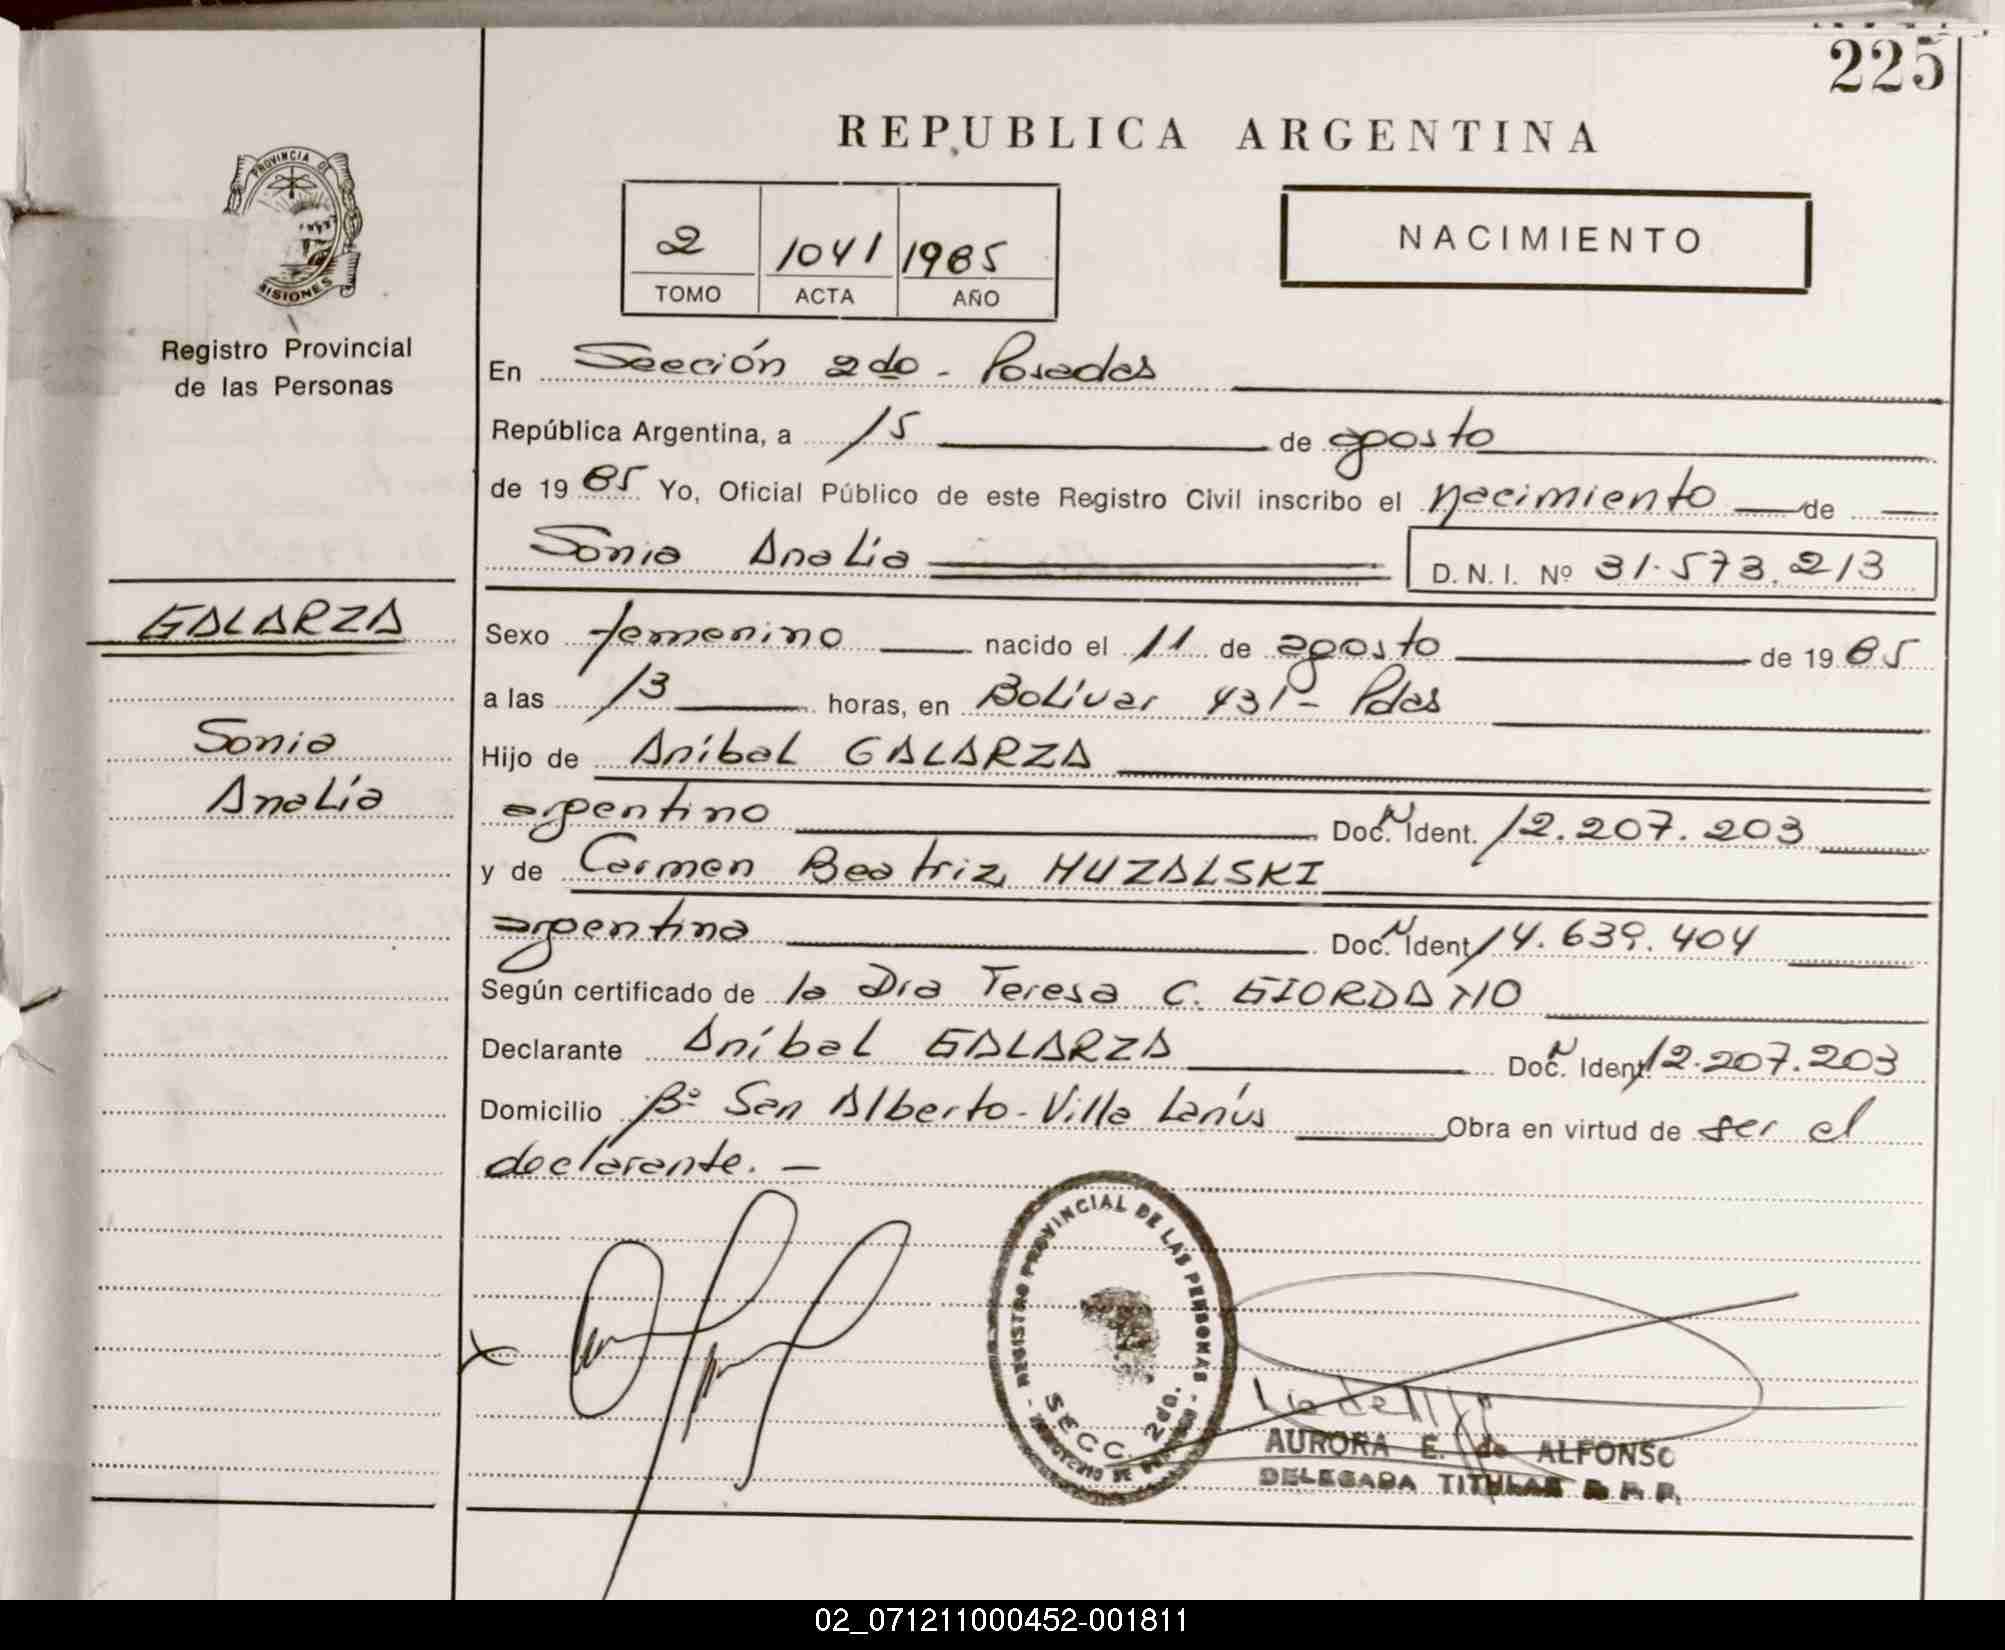 225
REPUBLICA ARGENTINA
PROVINCIA DE
MISIONES
Registro Provincial
de las Personas
2 1041 1985
TOMO ACTA AÑO
NACIMIENTO
En Sección 2da - Posadas
República Argentina, a 15 de agosto
de 1985 Yo, Oficial Público de este Registro Civil inscribo el nacimiento de
Sonia Analía D. N. I. Nº 31.573.213
GALARZA
Sonia
Analía
Sexo femenino nacido el 11 de agosto de 1985
a las 13 horas, en Bolívar 431 - Pdas
Hijo de Aníbal GALARZA
argentino Doc. N Ident. 12.207.203
y de Carmen Beatriz HUZALSKI
argentina Doc. N Ident. 14.639.404
Según certificado de la Dra Teresa C. GIORDANO
Declarante Aníbal GALARZA Doc. N Ident. 12.207.203
Domicilio Bº San Alberto - Villa Lanús Obra en virtud de ser el
declarante. -
REGISTRO PROVINCIAL DE LAS PERSONAS
SECC. 2da.
AURORA E. de ALFONSO
DELEGADA TITULAR R. P. P.
02_071211000452-001811